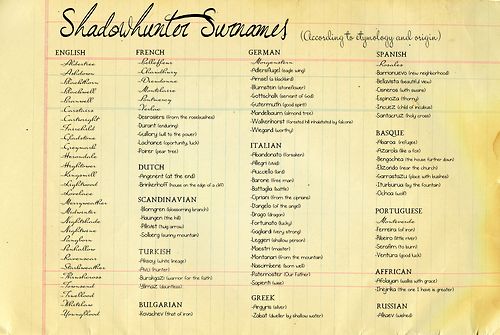 Shadowhunter Surnames
(According to etymology and origin)
ENGLISH
Aldertree
Ashdown
Blackthorn
Blackwell
Branwell
Carstairs
Cartwright
Fairchild
Gladstone
Graymark
Herondale
Lightwood
Lovelace
Merryweather
Midwinter
Nightshade
Nightwine
Pangborn
Penhallow
Starkweather
Townsend
Trueblood
Whitelaw
Youngblood
FRENCH
Bellefleur
Dieudonne
Montclaire
Pontmercy
Verlac
Desrosiers (from the rosebushes)
Durant (enduring)
(will to power)
Lachance (opportunity, luck)
Poirier (pear tree)
DUTCH
Angenent (at the end)
Brinkerhoff (house on the edge of a cliff)
SCANDINAVIAN
Blomgren (blossoming branch)
Haugen (the hill)
(twig arrow)
Solberg (sunny mountain)
TURKISH
Aksoy (white lineage)
Avci (hunter)
(warrior for the faith)
Yilmaz (dauntless)
BULGARIAN
Kovachev (that of iron)
GERMAN
Morgenstern
Adlersflugel (eagle wing)
Amsel (a blackbird)
Blumstein (stoneflower)
Gottschalk (servant of God)
Gutermuth (good spirit)
Mandelbaum (almond tree)
Walkenhorst (forested hill inhabited by falcons)
Wiegand (worthy)
ITALIAN
Abandonato (forsaken)
Allegri (vivid)
Auccello (bird)
Barone (free man)
Battaglia (battle)
Cipriani (from the cyprians)
Dangelo (of the angel)
Drago (dragon)
Fortunato (lucky)
Gagliardi (very strong)
Leggieri (shallow person)
Maestri (master)
Montanari (from the mountain)
Nascimbene (born well)
Paternoster (Our Father)
Sapienti (wise)
GREEK
Argyris (silver)
Zabat (dweller by shallow water)
SPANISH
Rosales
Barrionuevo (new neighborhood)
Bellavista (beautiful view)
Cisneros (with swans)
Espinoza (thorny)
(child of incubus)
Santacruz (holy cross)
BASQUE
Abaroa (refuge)
Azarola (like a fox)
Bengochea (the house further down)
Elizondo (near the church)
Garrastazu (place with bushes)
Iturburua (by the fountain)
Ochoa (wolf)
PORTUGUESE
Monteverde
Ferreira (of iron)
Ribeiro (little river)
Serafim (to burn)
Ventura (good luck)
AFFRICAN
Afolayan (walks with grace)
(the one I have is greater)
RUSSIAN
(wished)